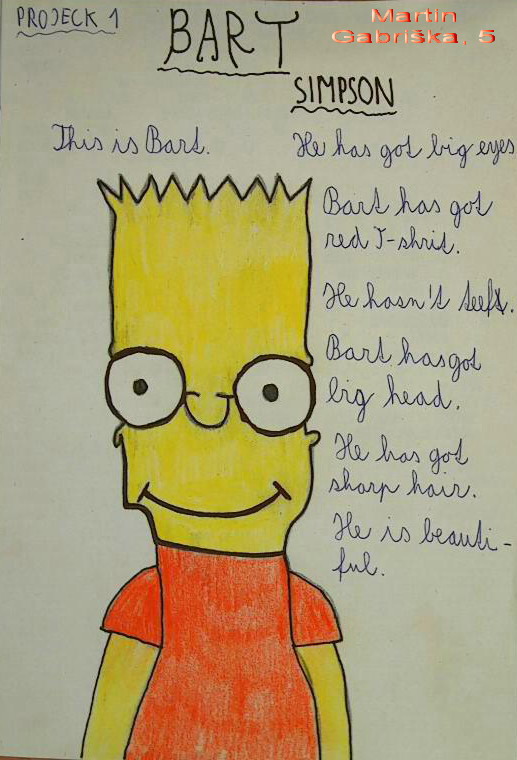 PROJECK 1
BART
SIMPSON
Martin
Gabriška, 5
This is Bart.
He has got big eyes
Bart has got
red T-shrit.
He hasn't teeft.
Bart has got
big head.
He has got
sharp hair.
He is beauti-
ful.